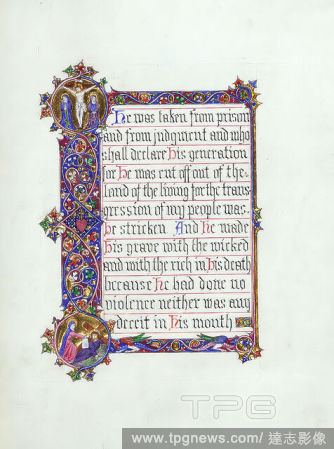 He was taken from prison
and from judgment and who
shall declare His generation
for He was cut off out of the
land of the living for the trans
gression of my people was
he stricken And he made
his grave with the wicked
and with the rich in his death
because he had done no
violence neither was any
deceit in His mouth
TPG
www.tpgnews.com/ 達志影像